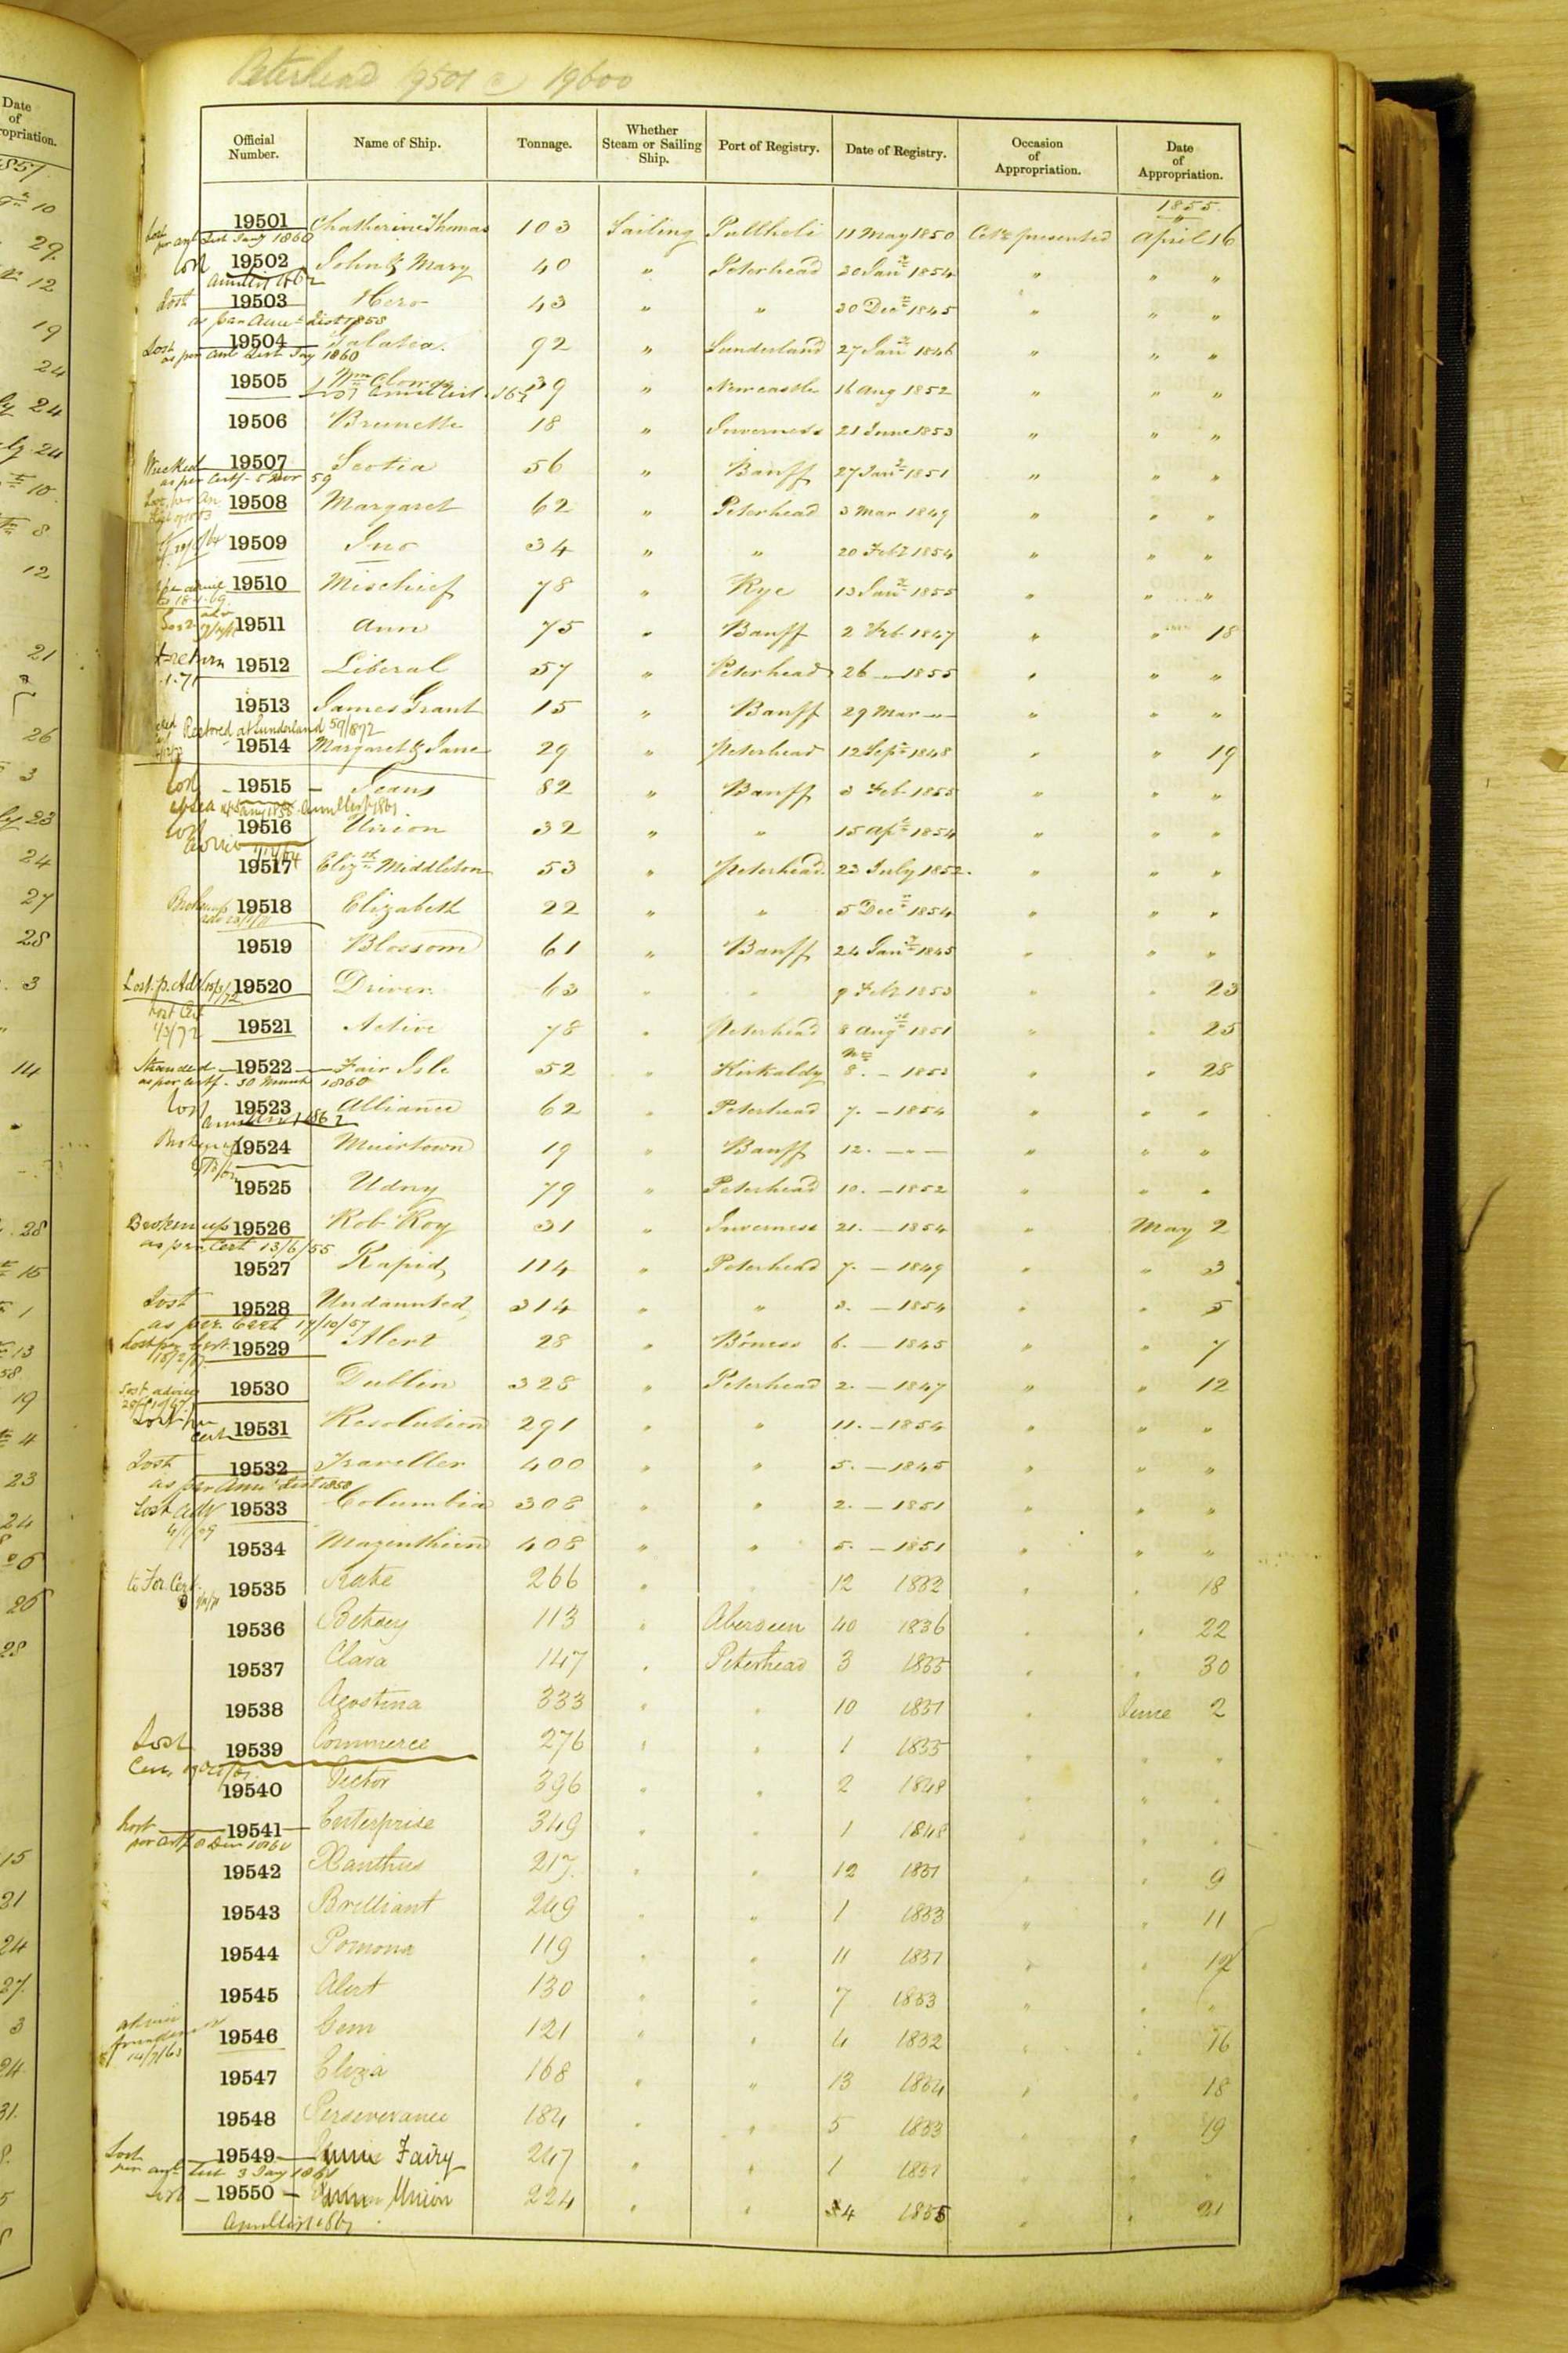 Peterhead 19501 @ 19600
Official Number. Name of Ship. Tonnage. Whether Steam or Sailing Ship. Port of Registry. Date of Registry. Occasion of Appropriation. Date of Appropriation.
1855.
19501 Chatherine Thomas 103 Sailing Pullheli 11 May 1850 Cert presented April 16
Lost per anl List Jany 1860
Lost 19502 John & Mary 40 " Peterhead 30 Jan 1854 " " "
Annl List 1862
Lost 19503 Hero 43 " " 30 Dec 1845 " " "
as per Annl List 1858
Lost 19504 Galatea 92 " Sunderland 27 Jan 1846 " " "
as per Anl List Jay 1860
19505 Wm 39 " Newcastle 16 Aug 1852 " " "
19506 Brunette 18 " Inverness 21 June 1853 " " "
Wrecked 19507 Scotia 56 " Banff 27 Jan 1851 " " "
as per Certf. 5 Novr 59
19508 Margaret 62 " Peterhead 3 Mar 1849 " " "
19509 Ino 34 " " 20 Feb 1854 " " "
19510 Mischief 78 " Rye 13 Jan 1855 " " "
19511 Ann 75 " Banff 2 Feb. 1847 " " 18
19512 Liberal 57 " Peterhead 26 — 1855 " " "
19513 James Grant 15 " Banff 29 Mar — " — " " "
Restored at Sunderland 59/1872
19514 Margaret & Jane 29 " Peterhead 12 Sep 1848 " " 19
Lost 19515 Jeans 82 " Banff 3 Feb. 1855 " " "
Lost 19516 Union 32 " " 15 Ap 1854 " " "
19517 Elizth Middleton 53 " Peterhead 23 July 1852. " " "
Broken up 19518 Elizabeth 22 " " 5 Dec 1854 " " "
19519 Blossom 61 " Banff 24 Jan 1845 " " "
Lost p. Adv 19520 Driver 63 " " 9 Feb 1853 " " 23
Lost Cert 1/3/72 19521 Active 78 " Peterhead 8 Aug 1851 " " 25
Stranded 19522 Fair Isle 52 " Kirkaldy No 8. — 1853 " " 28
as per Certf. 30 March 1860
Lost 19523 Alliance 62 " Peterhead 7. — 1854 " " "
Annl List 1862
Broken up 19524 Muirtown 19 " Banff 12. — " — " " "
19525 Udny 79 " Peterhead 10. — 1852 " " "
Broken up 19526 Rob Roy 31 " Inverness 21. — 1854 " May 2
as per Cert 13/6/55
19527 Rapid 114 " Peterhead 7. — 1849 " " 3
Lost 19528 Undaunted 314 " " 3. — 1854 " " 5
as per Cert 17/10/57
Lost per Cert. 19529 Alert 28 " Boness 6. — 1845 " " 7
Lost advice 19530 Dublin 328 " Peterhead 2. — 1847 " " 12
Lost per Cert 19531 Resolution 291 " " 11. — 1854 " " "
Lost 19532 Traveller 400 " " 5. — 1845 " " "
as per Annl List 1858
Lost Adv 19533 Columbia 308 " " 2. — 1851 " " "
19534 Mazenthien 408 " " 5. — 1851 " " "
to For. Cert. 19535 Kate 266 " " 12 1832 " " 18
19536 Betsey 113 " Aberdeen 40 1836 " " 22
19537 Clara 147 " Peterhead 3 1835 " " 30
19538 Agostina 333 " " 10 1837 " June 2
Lost 19539 Commerce 276 " " 1 1835 " " "
19540 Victor 396 " " 2 1848 " " "
Lost 19541 Enterprise 349 " " 1 1848 " " "
per Certf 8 Dec 1860
19542 Xanthus 217. " " 12 1851 " " 9
19543 Brilliant 249 " " 1 1853 " " 11
19544 Pomona 119 " " 11 1851 " " 12
19545 Alert 130 " " 7 1853 " " "
19546 Gem 121 " " 4 1852 " " 16
14/7/63
19547 Eliza 168 " " 13 1854 " " 18
19548 Perseverance 184 " " 5 1853 " " 19
Lost 19549 Fairy 247 " " 1 1851 " " "
per anl List 3 Jay 1861
Lost 19550 Union 224 " " 4 1855 " " 21
Annl List 1867